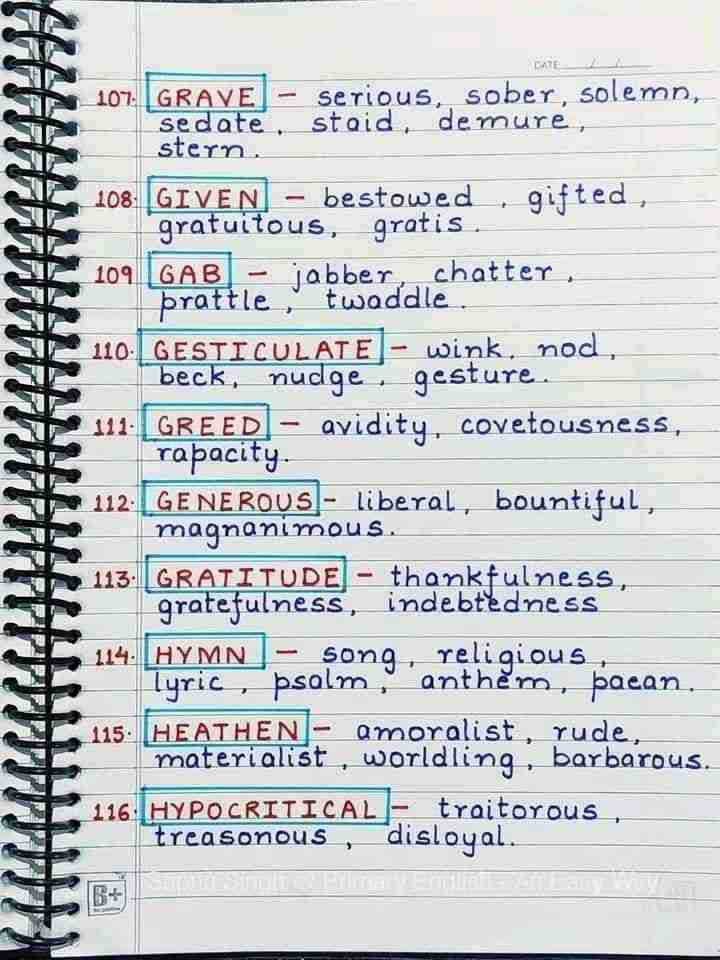 DATE / /
107. GRAVE – serious, sober, solemn,
sedate, staid, demure,
stern.
108. GIVEN – bestowed, gifted,
gratuitous, gratis.
109 GAB – jabber, chatter,
prattle, twaddle.
110. GESTICULATE – wink, nod,
beck, nudge, gesture.
111. GREED – avidity, covetousness,
rapacity.
112. GENEROUS – liberal, bountiful,
magnanimous.
113. GRATITUDE – thankfulness,
gratefulness, indebtedness
114. HYMN – song, religious,
lyric, psalm, anthem, paean.
115. HEATHEN – amoralist, rude,
materialist, worldling, barbarous.
116. HYPOCRITICAL – traitorous,
treasonous, disloyal.
B+
Singh Primary English - An Easy Way